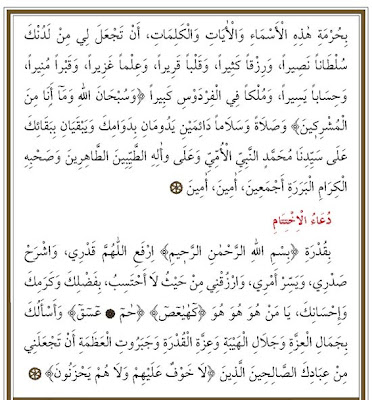 بِحُرْمَةِ هٰذِهِ الْأَسْمَاءِ وَالْأٰيَاتِ وَالْكَلِمَاتِ، أَنْ تَجْعَلَ لِي مِنْ لَدُنْكَ
سُلْطَاناً نَصِيراً، وَرِزْقاً كَثِيراً، وَقَلْباً قَرِيراً، وَعِلْماً غَزِيراً، وَقَبْراً مُنِيراً،
وَحِسَاباً يَسِيراً، وَمُلْكاً فِي الْفِرْدَوْسِ كَبِيراً ﴿وَسُبْحَانَ اللهِ وَمَٓا أَنَا مِنَ
الْمُشْرِكِينَ﴾ وَصَلَاةً وَسَلَاماً دَائِمَيْنِ يَدُومَانِ بِدَوَامِكَ وَيَبْقَيَانِ بِبَقَائِكَ
عَلَى سَيِّدِنَا مُحَمَّدٍ النَّبِيِّ الْأُمِّيِّ وَعَلَى وَأٰلِهِ الطَّيِّبِينَ الطَّاهِرِينَ وَصَحْبِهِ
الْكِرَامِ الْبَرَرَةِ أَجْمَعِينَ، أٰمِينَ، أٰمِينَ
دُعَاءُ الْاخْتِتَامِ
بِقُدْرَةِ ﴿بِسْمِ اللهِ الرَّحْمٰنِ الرَّحِيمِ﴾ اِرْفَعِ اللّٰهُمَّ قَدْرِي، وَاشْرَحْ
صَدْرِي، وَيَسِّرْ أَمْرِي، وَارْزُقْنِي مِنْ حَيْثُ لَا أَحْتَسِبُ، بِفَضْلِكَ وَكَرَمِكَ
وَإِحْسَانِكَ، يَا مَنْ هُوَ هُوَ هُوَ ﴿كٓهٰيٰعٓصٓ﴾ ﴿حٰمٓ ۞ عٓسٓقٓ﴾ وَأَسْأَلُكَ
بِجَمَالِ الْعِزَّةِ وَجَلَالِ الْهَيْبَةِ وَعِزَّةِ الْقُدْرَةِ وَجَبَرُوتِ الْعَظَمَةِ أَنْ تَجْعَلَنِي
مِنْ عِبَادِكَ الصَّالِحِينَ الَّذِينَ ﴿لَا خَوْفٌ عَلَيْهِمْ وَلَا هُمْ يَحْزَنُونَ﴾